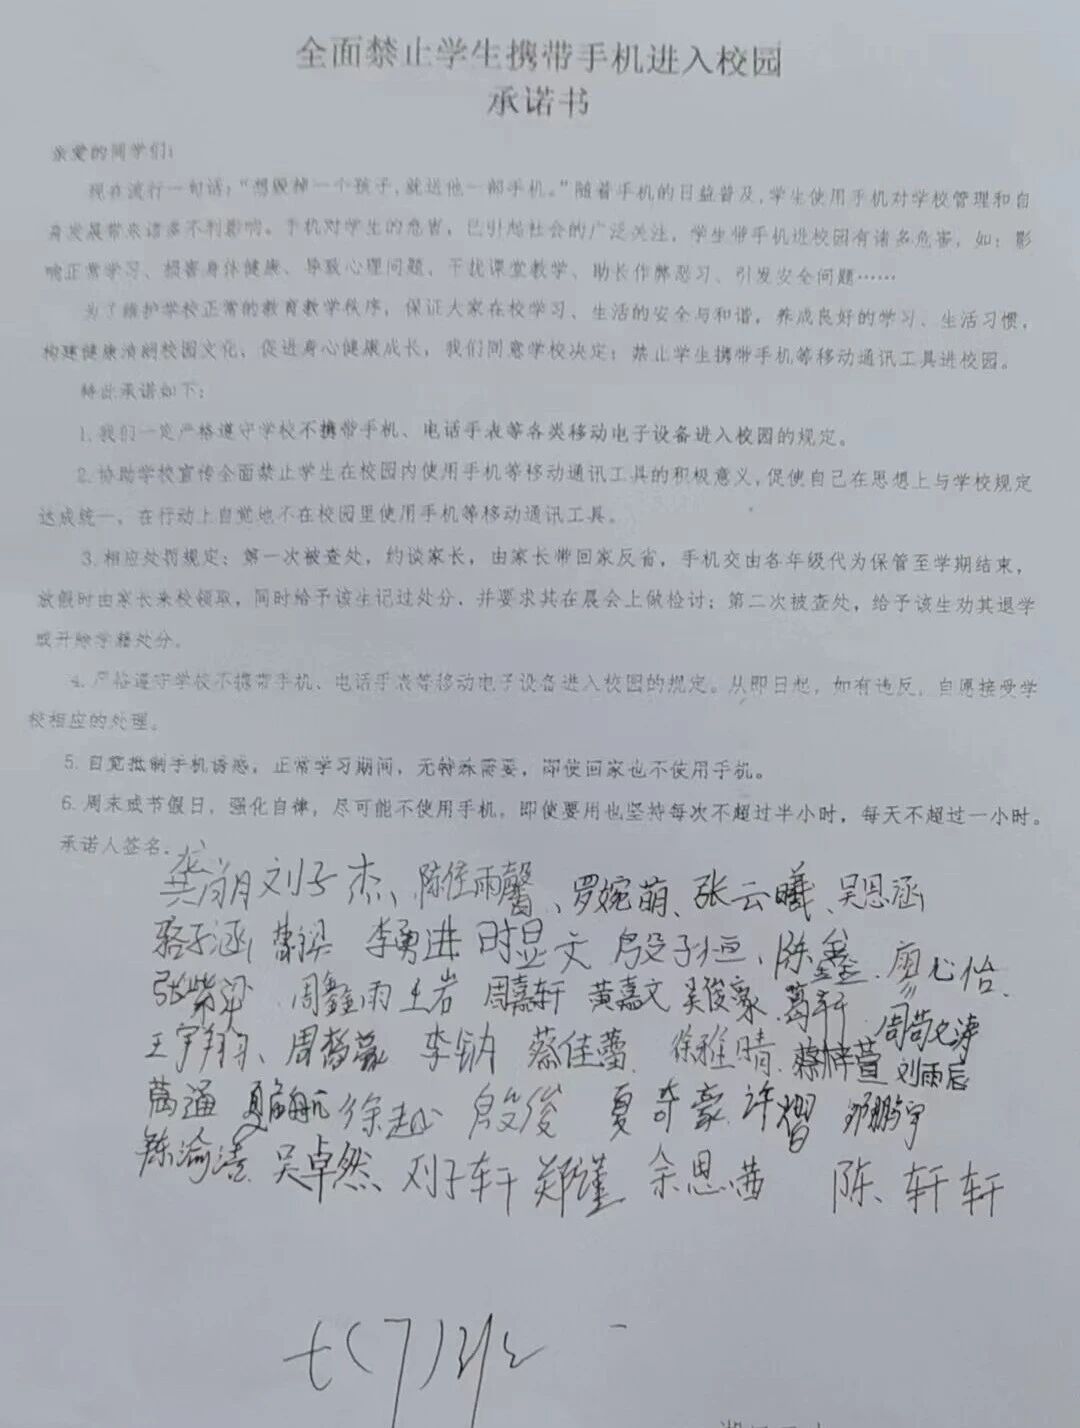 全面禁止学生携带手机进入校园
承诺书
亲爱的同学们：
现在流行一句话：“想毁掉一个孩子，就送他一部手机。”随着手机的日益普及，学生使用手机对学校管理和自
身发展带来诸多不利影响。手机对学生的危害，已引起社会的广泛关注，学生带手机进校园有诸多危害，如：影
响正常学习、损害身体健康、导致心理问题，干扰课堂教学、助长作弊恶习、引发安全问题……
为了维护学校正常的教育教学秩序，保证大家在校学习、生活的安全与和谐，养成良好的学习、生活习惯，
构建健康清朗校园文化，促进身心健康成长，我们同意学校决定：禁止学生携带手机等移动通讯工具进校园。
特此承诺如下：
1.我们一定严格遵守学校不携带手机、电话手表等各类移动电子设备进入校园的规定。
2.协助学校宣传全面禁止学生在校园内使用手机等移动通讯工具的积极意义，促使自己在思想上与学校规定
达成统一，在行动上自觉地不在校园里使用手机等移动通讯工具。
3.相应处罚规定：第一次被查处，约谈家长，由家长带回家反省，手机交由各年级代为保管至学期结束，
放假时由家长来校领取，同时给予该生记过处分，并要求其在晨会上做检讨；第二次被查处，给予该生劝其退学
或开除学籍处分。
4.严格遵守学校不携带手机、电话手表等移动电子设备进入校园的规定。从即日起，如有违反，自愿接受学
校相应的处理。
5.自觉抵制手机诱惑，正常学习期间，无特殊需要，即使回家也不使用手机。
6.周末或节假日，强化自律，尽可能不使用手机，即使要用也坚持每次不超过半小时，每天不超过一小时。
承诺人签名：
刘子杰、陈佳雨馨、罗婉萌、张云曦、吴恩涵
骆子涵 曹梁 李勇进 时显文 殷子恒、陈鑫 廖心怡、
张紫涵 周鑫雨 王岩 周嘉轩 黄嘉文 吴俊豪 葛轩
王宇翔、周哲豪 李钠 蔡佳蕾 徐雅晴 蔡梓萱 刘雨辰
萬通 徐赵 殷俊 夏奇豪 许熠 邓鹏宇
陈渝涛 吴卓然、刘子轩 郑谨 余恩茜 陈、轩轩
七(7)班